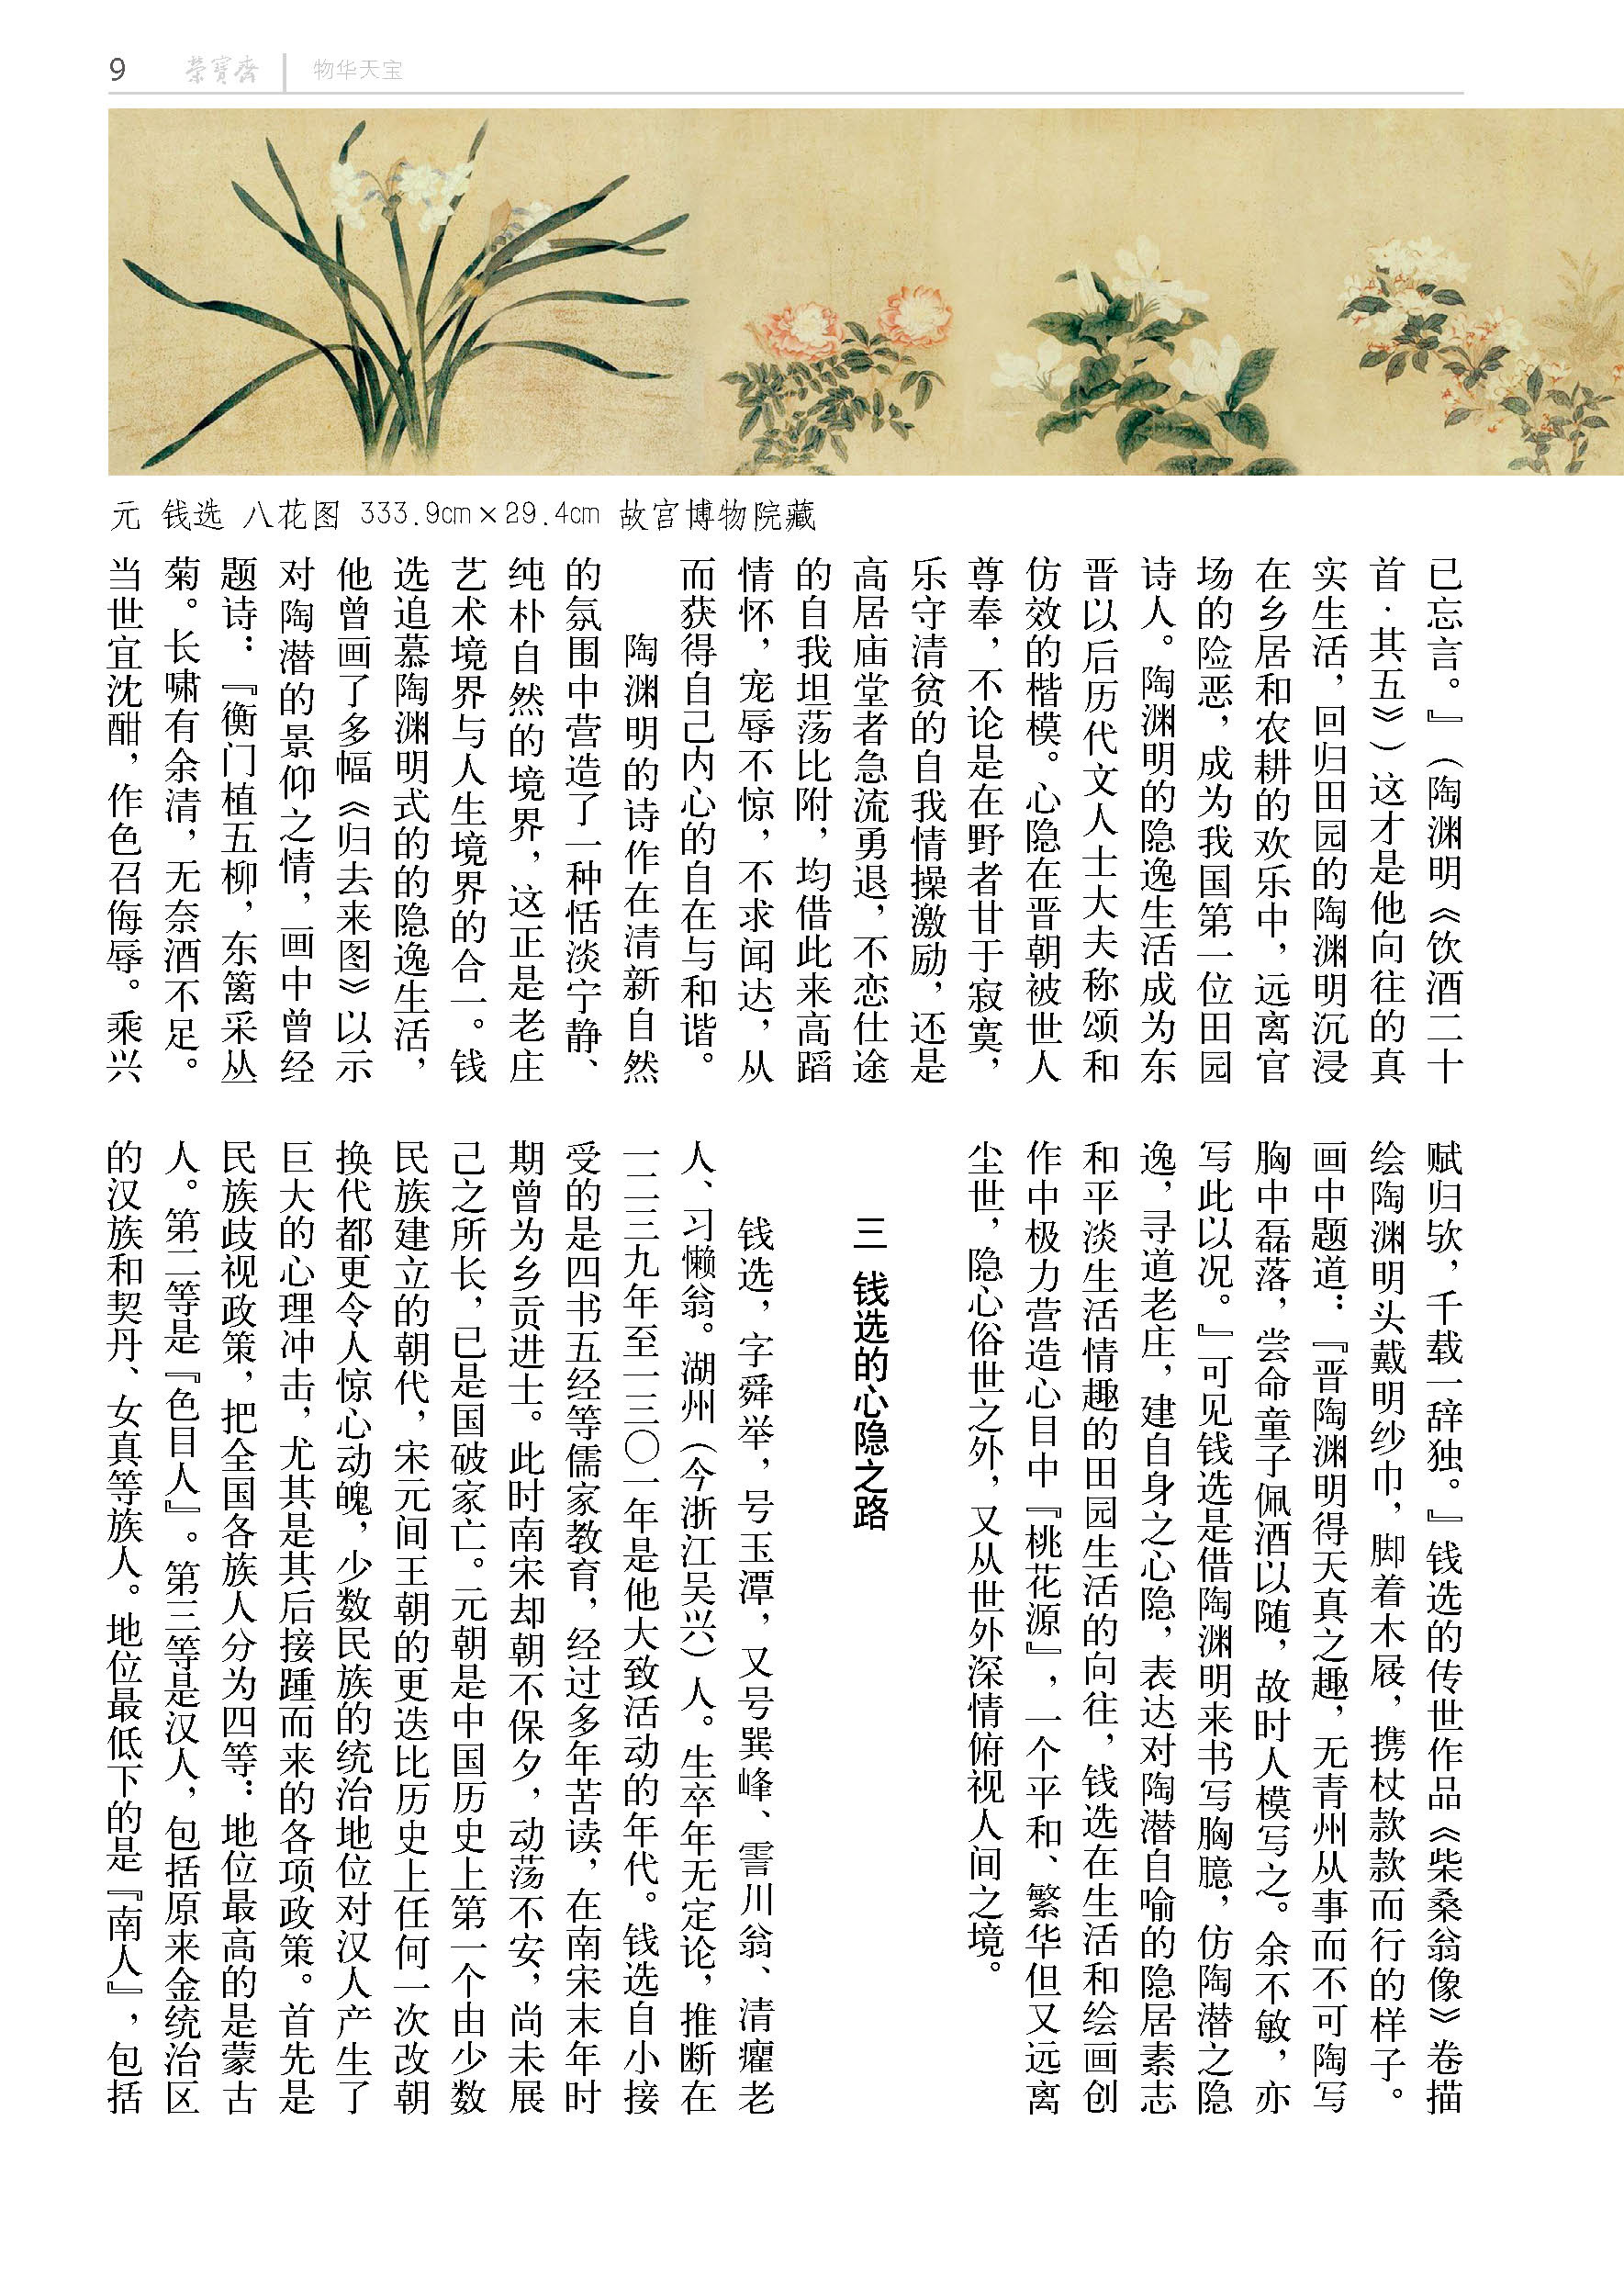 9 荣宝斋 物华天宝
元 钱选 八花图 333.9cm×29.4cm 故宫博物院藏
已忘言。』（陶渊明《饮酒二十
首·其五》）这才是他向往的真
实生活，回归田园的陶渊明沉浸
在乡居和农耕的欢乐中，远离官
场的险恶，成为我国第一位田园
诗人。陶渊明的隐逸生活成为东
晋以后历代文人士大夫称颂和
仿效的楷模。心隐在晋朝被世人
尊奉，不论是在野者甘于寂寞，
乐守清贫的自我情操激励，还是
高居庙堂者急流勇退，不恋仕途
的自我坦荡比附，均借此来高蹈
情怀，宠辱不惊，不求闻达，从
而获得自己内心的自在与和谐。
陶渊明的诗作在清新自然
的氛围中营造了一种恬淡宁静、
纯朴自然的境界，这正是老庄
艺术境界与人生境界的合一。钱
选追慕陶渊明式的的隐逸生活，
他曾画了多幅《归去来图》以示
对陶潜的景仰之情，画中曾经
题诗：『衡门植五柳，东篱采丛
菊。长啸有余清，无奈酒不足。
当世宜沈酣，作色召侮辱。乘兴
赋归欤，千载一辞独。』钱选的传世作品《柴桑翁像》卷描
绘陶渊明头戴明纱巾，脚着木屐，携杖款款而行的样子。
画中题道：『晋陶渊明得天真之趣，无青州从事而不可陶写
胸中磊落，尝命童子佩酒以随，故时人模写之。余不敏，亦
写此以况。』可见钱选是借陶渊明来书写胸臆，仿陶潜之隐
逸，寻道老庄，建自身之心隐，表达对陶潜自喻的隐居素志
和平淡生活情趣的田园生活的向往，钱选在生活和绘画创
作中极力营造心目中『桃花源』，一个平和、繁华但又远离
尘世，隐心俗世之外，又从世外深情俯视人间之境。
三 钱选的心隐之路
钱选，字舜举，号玉潭，又号巽峰、霅川翁、清癯老
人、习懒翁。湖州（今浙江吴兴）人。生卒年无定论，推断在
一二三九年至一三〇一年是他大致活动的年代。钱选自小接
受的是四书五经等儒家教育，经过多年苦读，在南宋末年时
期曾为乡贡进士。此时南宋却朝不保夕，动荡不安，尚未展
己之所长，已是国破家亡。元朝是中国历史上第一个由少数
民族建立的朝代，宋元间王朝的更迭比历史上任何一次改朝
换代都更令人惊心动魄，少数民族的统治地位对汉人产生了
巨大的心理冲击，尤其是其后接踵而来的各项政策。首先是
民族歧视政策，把全国各族人分为四等：地位最高的是蒙古
人。第二等是『色目人』。第三等是汉人，包括原来金统治区
的汉族和契丹、女真等族人。地位最低下的是『南人』，包括